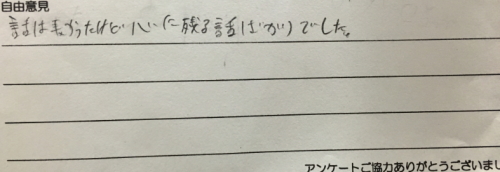 自由意見
話は長かったけど心に残る話ばかりでした。
アンケートご協力ありがとうございまし